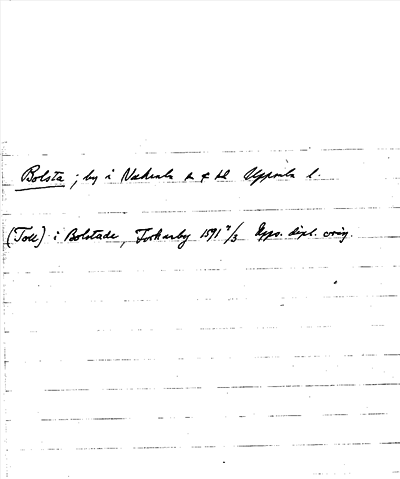 Bolsta ; by i Vaksala sn o hd Uppsala l.
(Toll) i Bolstade, Torkarby 1591 7/3 Upps. dipl. orig.